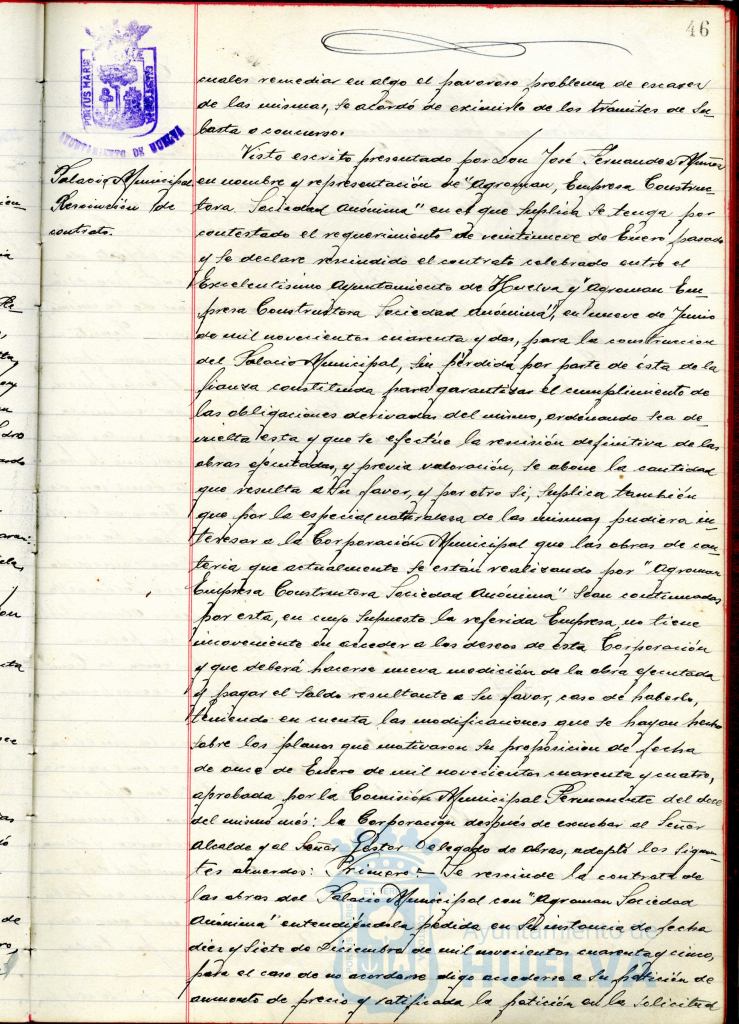 46
PORTUS MARIS
CUSTODIA
AYUNTAMIENTO DE HUELVA
cuales remediar en algo el pavoroso problema de escasez
de las mismas, se acordó de eximirlo de los trámites de Su-
basta o concurso.
Palacio Municipal
Rescinción de
contrato.
Visto escrito presentado por Don José Fernandez Muñoz
en nombre y representación de "Agroman, Empresa Construc-
tora Sociedad Anónima" en el que suplica se tenga por
contestado el requerimiento de veintinueve de Enero pasado
y se declare rescindido el contrato celebrado entre el
Excelentísimo Ayuntamiento de Huelva y "Agroman Em-
presa Constructora Sociedad Anónima", en nueve de Junio
de mil novecientos cuarenta y dos, para la construccion
del Palacio Municipal, sin pérdida por parte de ésta de la
fianza constituida para garantizar el cumplimiento de
las obligaciones derivadas del mismo, ordenando sea de-
vuelta esta y que se efectúe la rescisión definitiva de las
obras ejecutadas, y previa valoración, se abone la cantidad
que resulta a su favor, y por otro si, suplica también
que por la especial naturaleza de las mismas pudiera in-
teresar a la Corporación Municipal que las obras de can-
teria que actualmente se están realizando por "Agroman
Empresa Constructora Sociedad Anónima" sean continuadas
por esta, en cuyo supuesto la referida Empresa, no tiene
incoveniente en acceder a los deseos de esta Corporación
y que deberá hacerse nueva medición de la obra ejecutada
y pagar el saldo resultante a su favor, caso de haberlo,
teniendo en cuenta las modificaciones que se hayan hecho
sobre los planos que motivaron su proposicion de fecha
de once de Enero de mil novecientos cuarenta y cuatro,
aprobada por la Comisión Municipal Permanente del doce
del mismo més: la Corporación después de escuchar al Señor
Alcalde y al Señor Gestor Delegado de obras, adoptó los siguien-
tes acuerdos: Primero:- Se rescinde la contrata de
las obras del Palacio Municipal con "Agroman Sociedad
Anónima" entendiéndola pedida en su instancia de fecha
diez y siete de Diciembre de mil novecientos cuarenta y cinco,
para el caso de no acordarse digo accederse a su petición de
aumento de precio y ratificada la petición en la solicitud
Ayuntamiento de
HUELVA